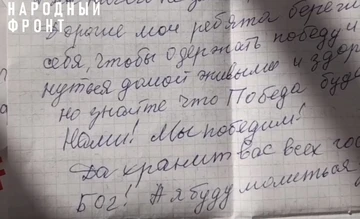 НАРОДНЫЙ
ФРОНТ
Дорогие мои ребята береги
себя, чтобы одержать победу и
нуться домой живыми и здор
но знайте что Победа буд
Нами! Мы победим!
Да хранит вас всех гос
Бог! А я буду молиться